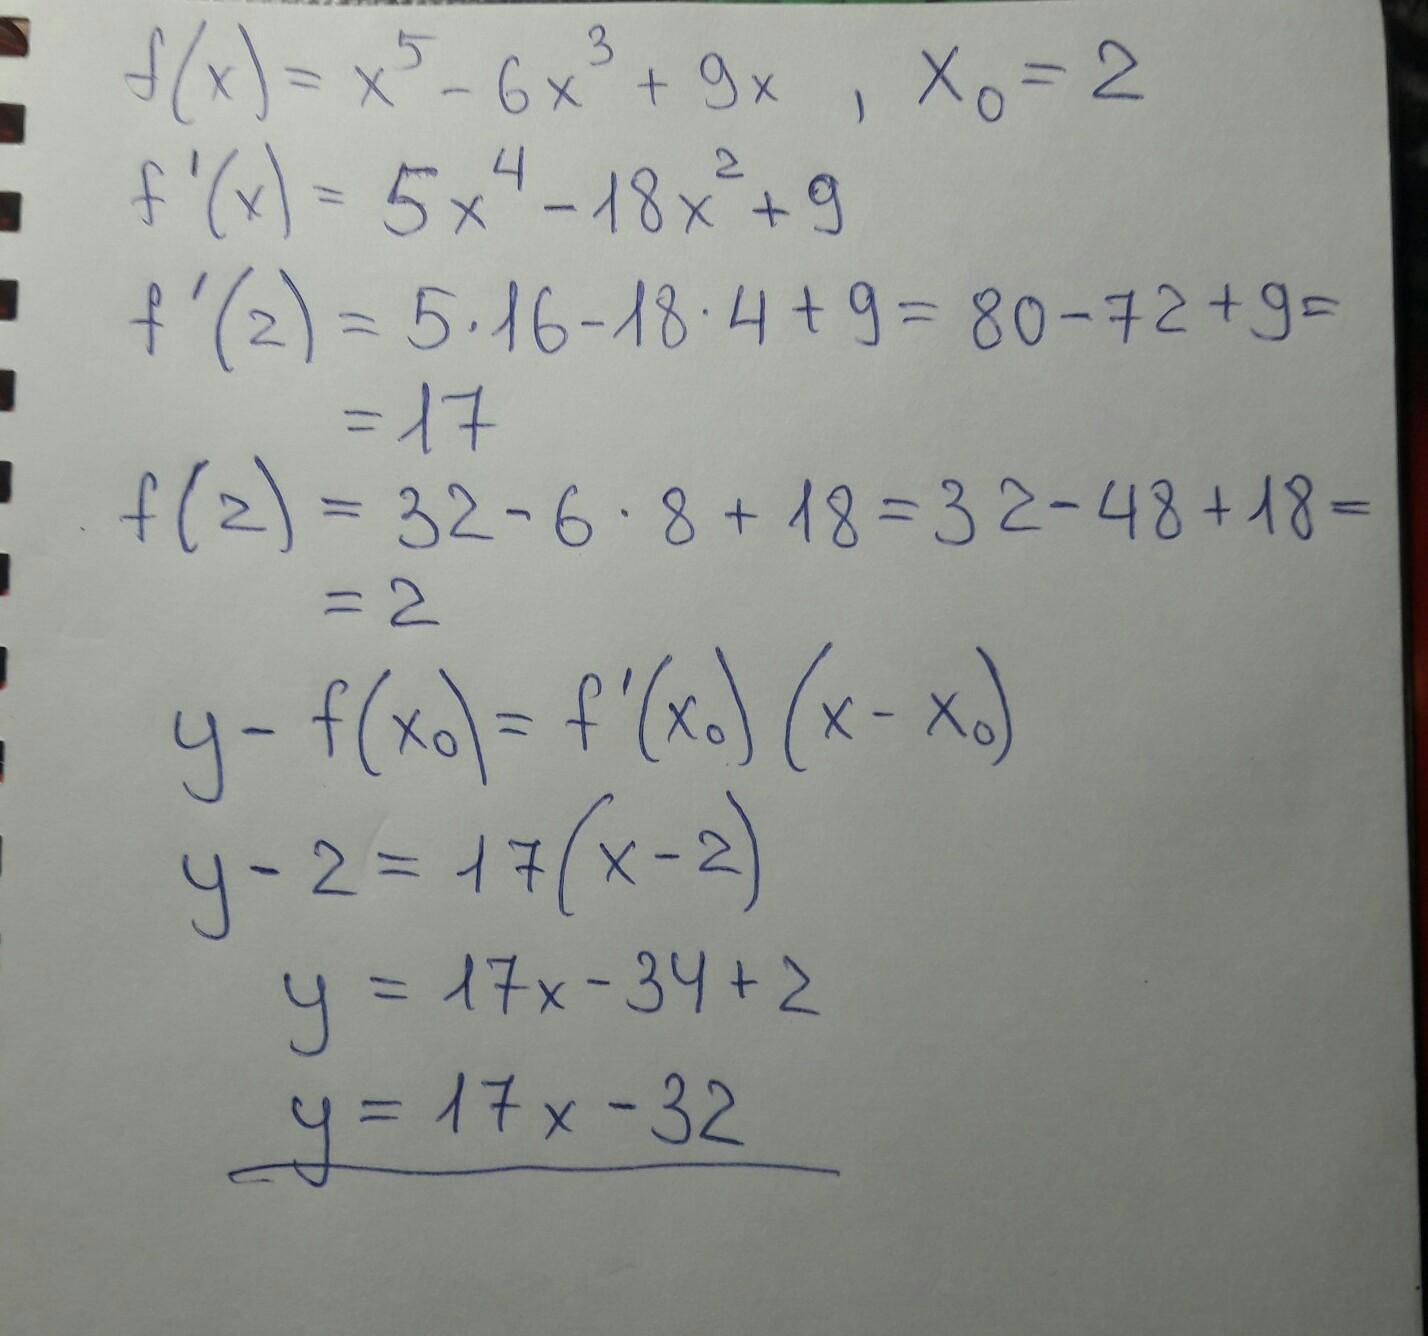 f(x) = x⁵ - 6x³ + 9x , x₀ = 2
f'(x) = 5x⁴ - 18x² + 9
f'(2) = 5·16 - 18·4 + 9 = 80 - 72 + 9 =
= 17
f(2) = 32 - 6·8 + 18 = 32 - 48 + 18 =
= 2
y - f(x₀) = f'(x₀)(x - x₀)
y - 2 = 17(x - 2)
y = 17x - 34 + 2
y = 17x - 32